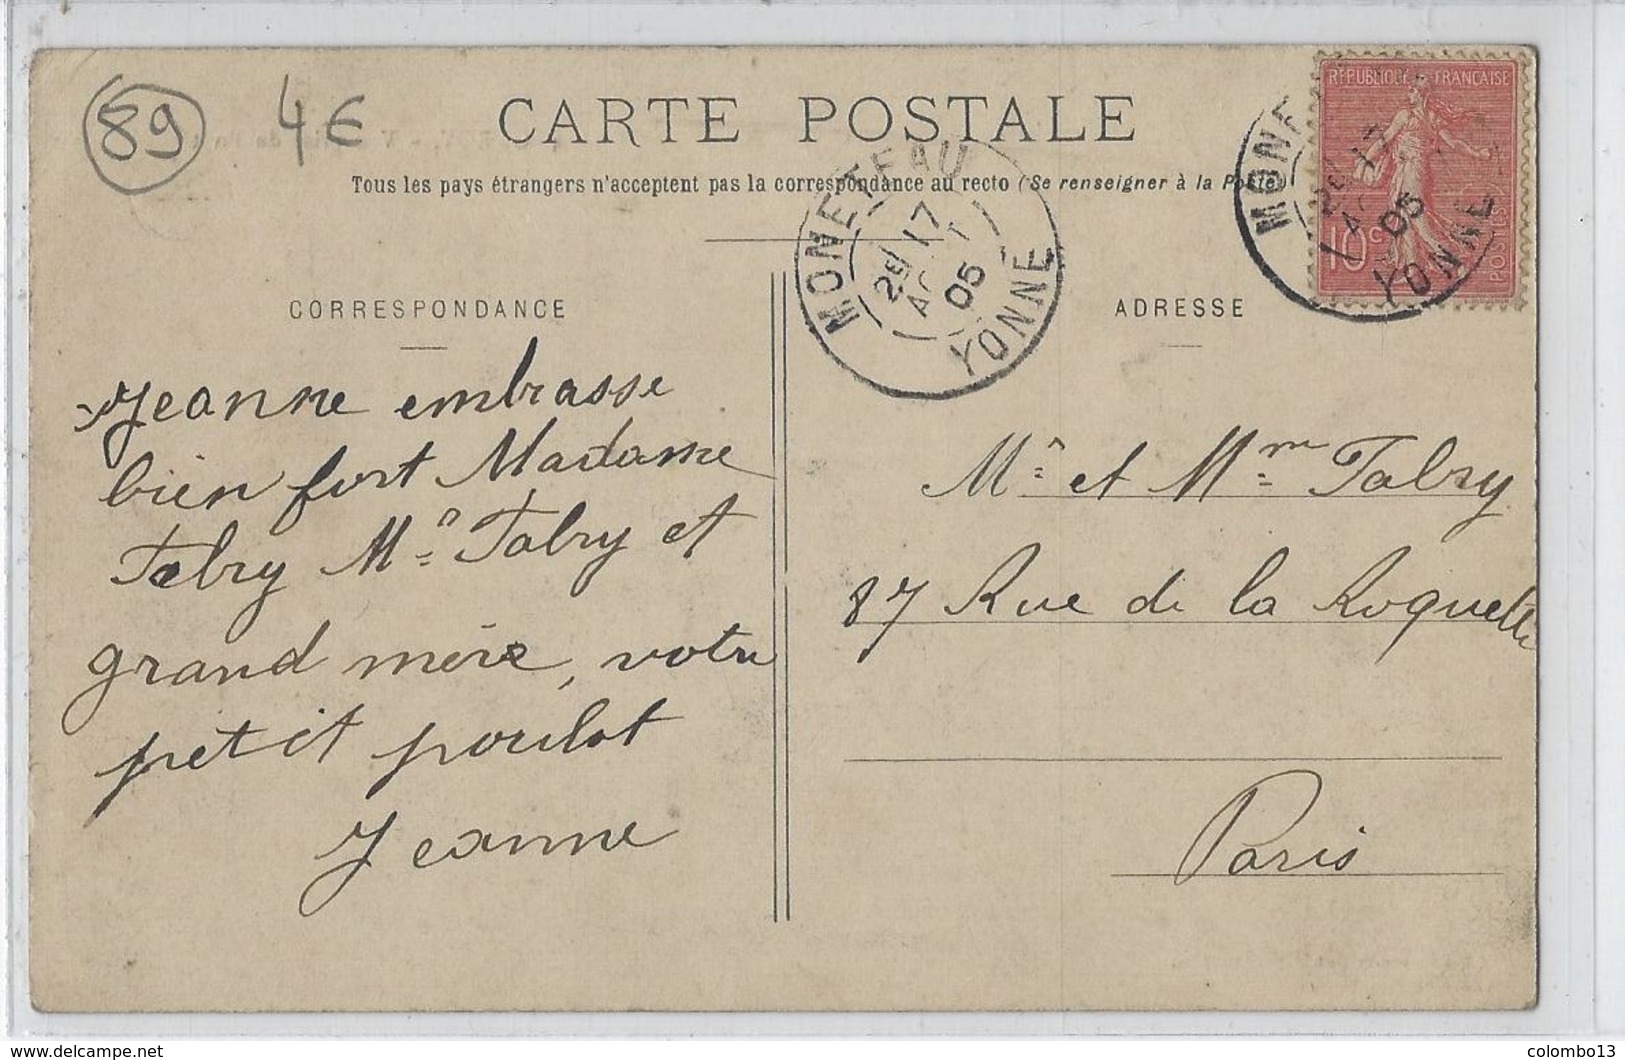 89
4€
CARTE POSTALE
Tous les pays étrangers n'acceptent pas la correspondance au recto (Se renseigner à la Poste)
RÉPUBLIQUE FRANÇAISE
10 c
POSTES
MONETEAU
2e 17
AOUT
05
YONNE
MONE
2e 17
05
YONNE
CORRESPONDANCE
Jeanne embrasse
bien fort Madame
Tabry Mr Tabry et
grand mère, votre
petit poulot
Jeanne
ADRESSE
Mr et Mm Tabry
87 Rue de la Roquette
Paris
http://www.delcampe.net
colombo13